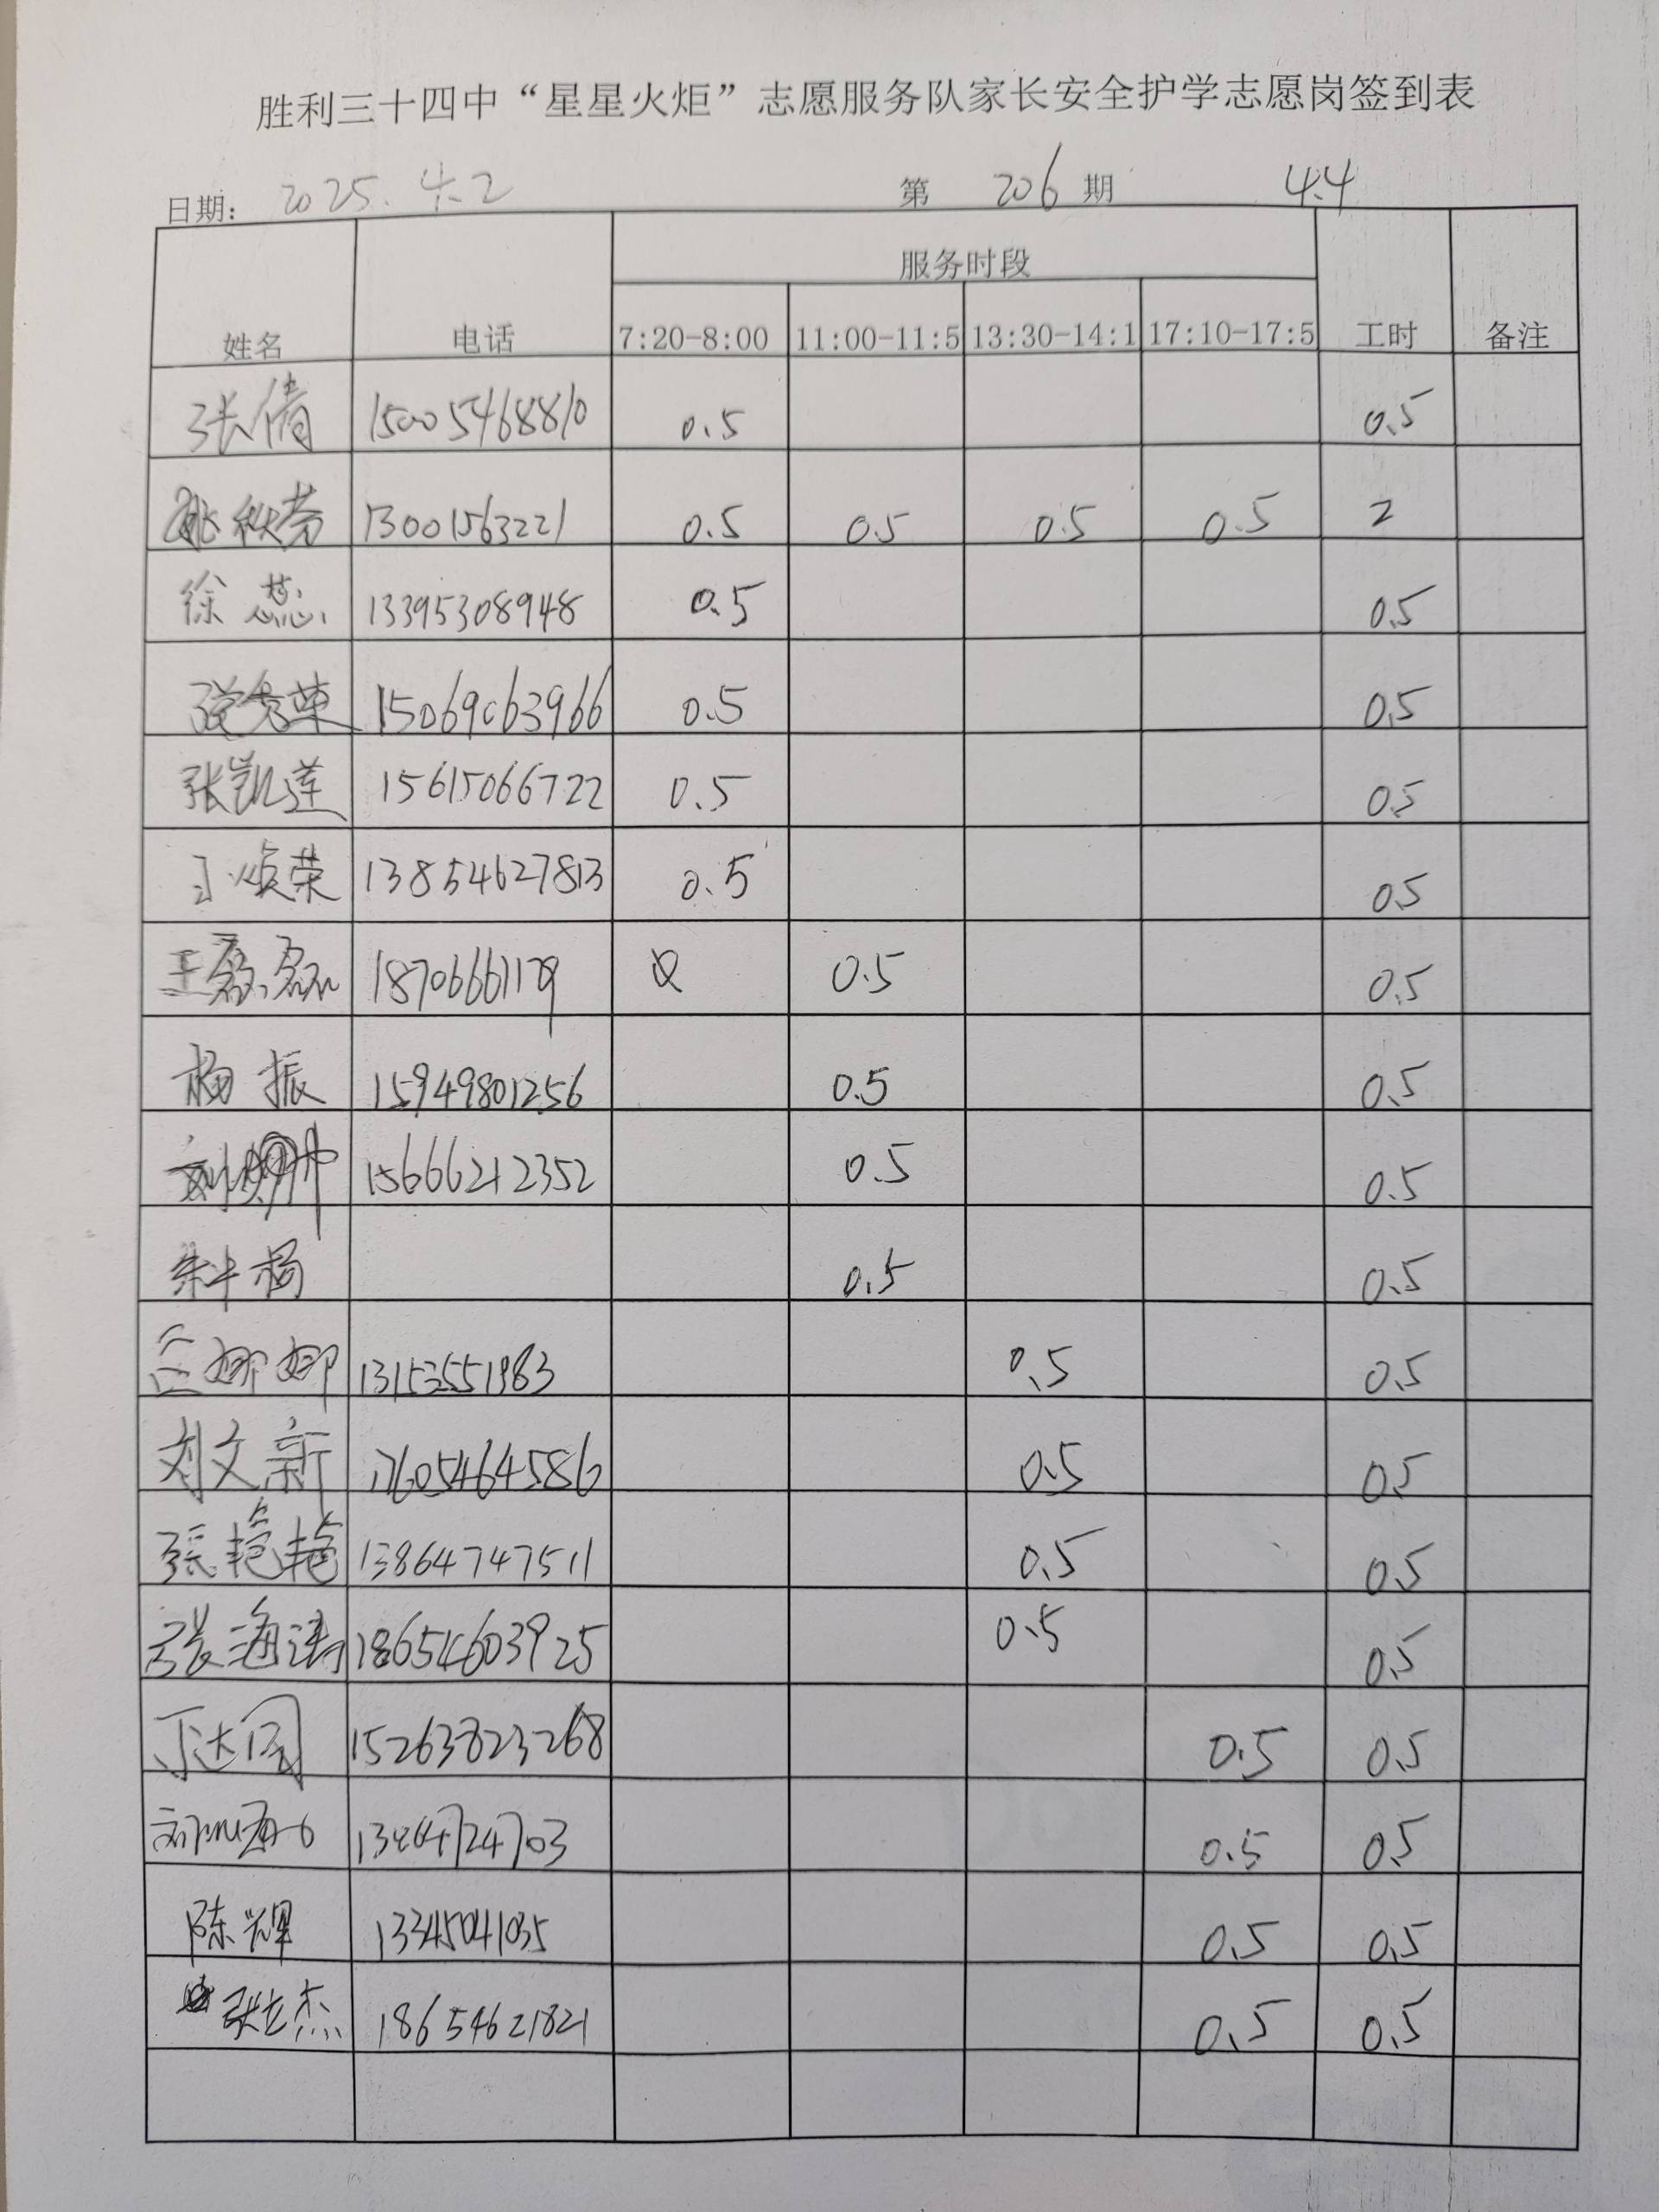 胜利三十四中“星星火炬”志愿服务队家长安全护学志愿岗签到表
日期: 2025.4.2 第 206 期 4.4
服务时段
姓名 电话 7:20-8:00 11:00-11:5 13:30-14:1 17:10-17:5 工时 备注
张倩 15005468810 0.5 0.5
13001563221 0.5 0.5 0.5 0.5 2
徐蕊 13395308948 0.5 0.5
荣 15069063966 0.5 0.5
张凯莲 15615066722 0.5 0.5
荣 13854627813 0.5 0.5
王磊磊 18706661179 0.5 0.5
杨振 15949801256 0.5 0.5
刘 15666212352 0.5 0.5
杨 0.5 0.5
娜娜 0.5 0.5
刘文新 17605464586 0.5 0.5
张艳艳 13864747511 0.5 0.5
张海涛 18654603925 0.5 0.5
15263823268 0.5 0.5
刘 0.5 0.5
陈辉 13345041035 0.5 0.5
张志杰 18654621821 0.5 0.5